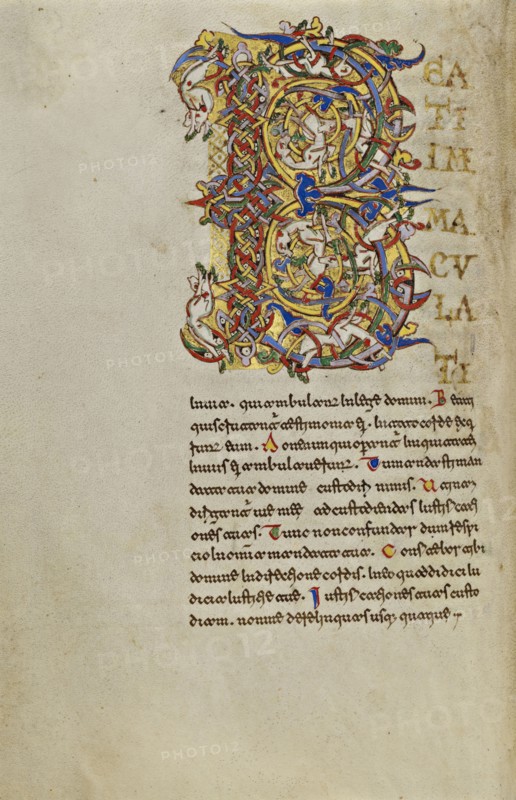 B
EA
TI
IM
MA
CV
LA
TI
in uia. qui ambulant in lege domini. Beati
qui scrutantur testimonia ei. in toto corde exq
runt eum. Non enim qui operantur iniquitatem
in uiis ei ambulauerunt. Tu mandasti man
data tua domine custodiri nimis. Utinam
dirigantur uie mee ad custodiendas iustificati
ones tuas. Tunc non confundar dum respi
cio in omnia mandata tua. Confitebor tibi
domine in directione cordis. in eo quod didici iu
dicia iustitie tue. Iustificationes tuas custo
diam. non me derelinquas usq; quaque.
PHOTO12